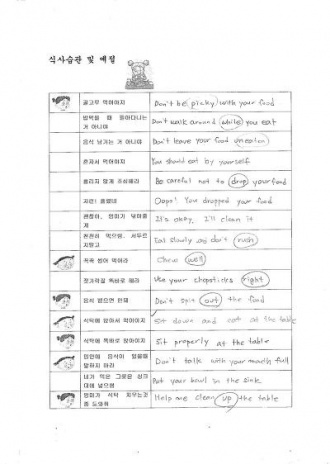 식사습관 및 예절
골고루 먹어야지
Don't be picky with your food
밥먹을 때 돌아다니는 거 아니야
Don't walk around while you eat
음식 남기는 거 아니야
Don't leave your food uneaten
혼자서 먹어야지
You should eat by yourself
흘리지 않게 조심해라
Be careful not to drop your food
저런! 흘렸네
Oops! You dropped your food
괜찮아, 엄마가 닦아줄게
It's okay, I'll clean it
천천히 먹으렴, 서두르지말고
Eat slowly and don't rush
꼭꼭 씹어 먹어라
Chew well
젓가락을 똑바로 해라
Use your chopsticks right
음식 뱉으면 안돼
Don't spit out the food
식탁에 앉아서 먹어야지
Sit down and eat at the table
식탁에 똑바로 앉아야지
Sit properly at the table
입안에 음식이 있을때 말하지 마라
Don't talk with your mouth full
네가 먹은 그릇은 싱크대에 넣으렴
Put your bowl in the sink
엄마가 식탁 치우는것 좀 도와줘
Help me clean up the table